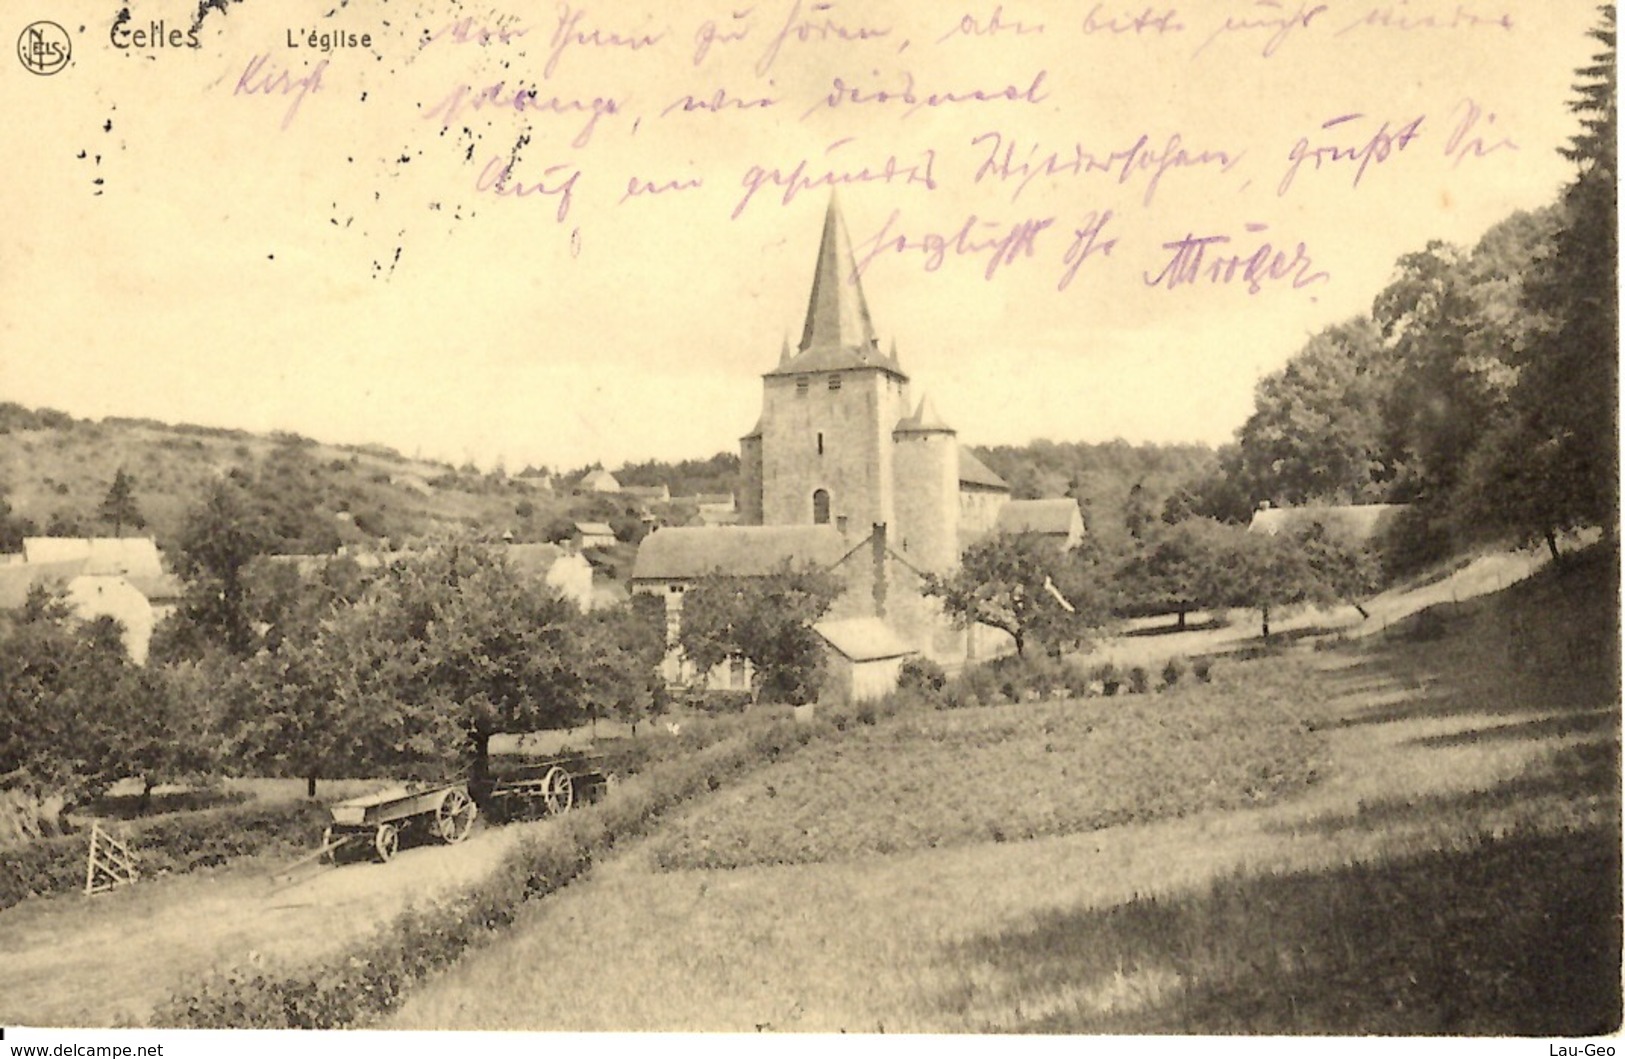 NELS
Celles L'église
von Ihnen zu hören, aber bitte nicht wieder
solange, wie diesmal
Auf ein gesundes Wiedersehen, grüßt Sie
herzlichst Ihr
www.delcampe.net
Lau-Geo